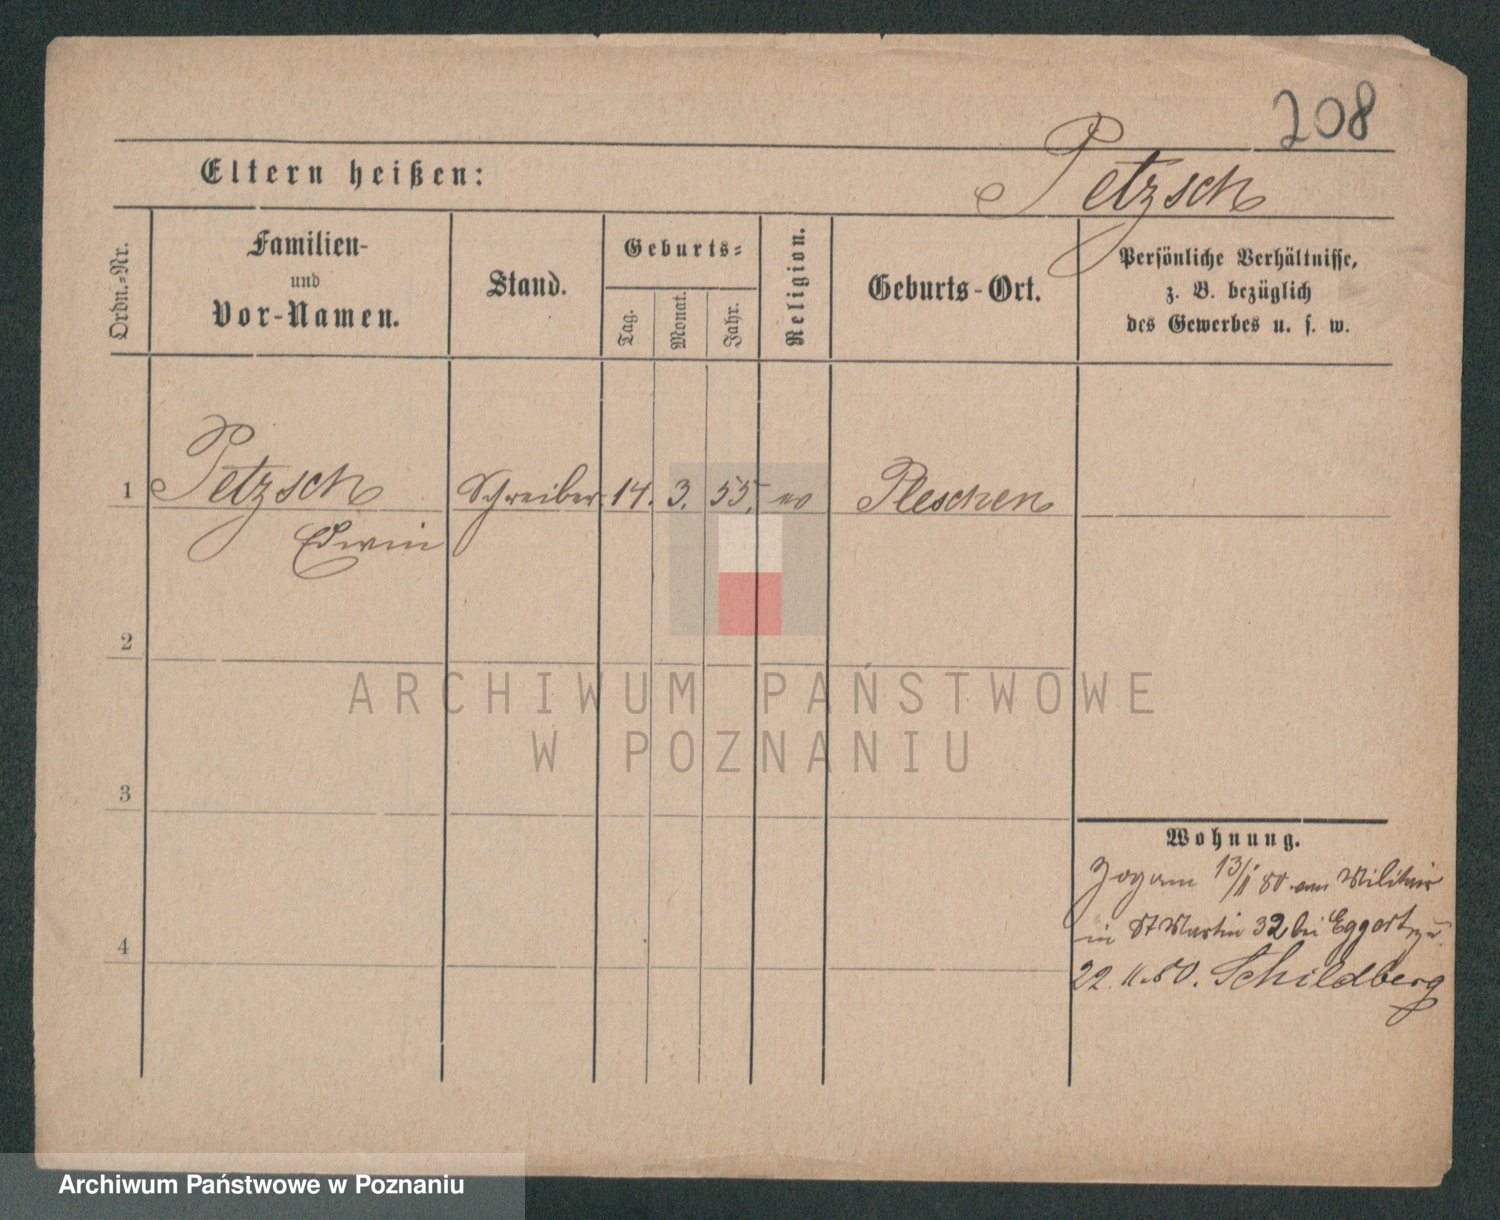 208
Eltern heißen:
Petzsch
Ordn.-Nr.
Familien-
und
Vor-Namen.
Stand.
Geburts-
Tag.
Monat.
Jahr.
Religion.
Geburts-Ort.
Persönliche Verhältnisse,
z. B. bezüglich
des Gewerbes u. s. w.
1 Petzsch Schreiber 14. 3. 55. ev Pleschen
Edwin
2
3
4
Wohnung.
Zog am 13/1 80 vom Militair
in St Martin 32 bei Eggert
22. 11. 80. Schildberg
ARCHIWUM PAŃSTWOWE
W POZNANIU
Archiwum Państwowe w Poznaniu